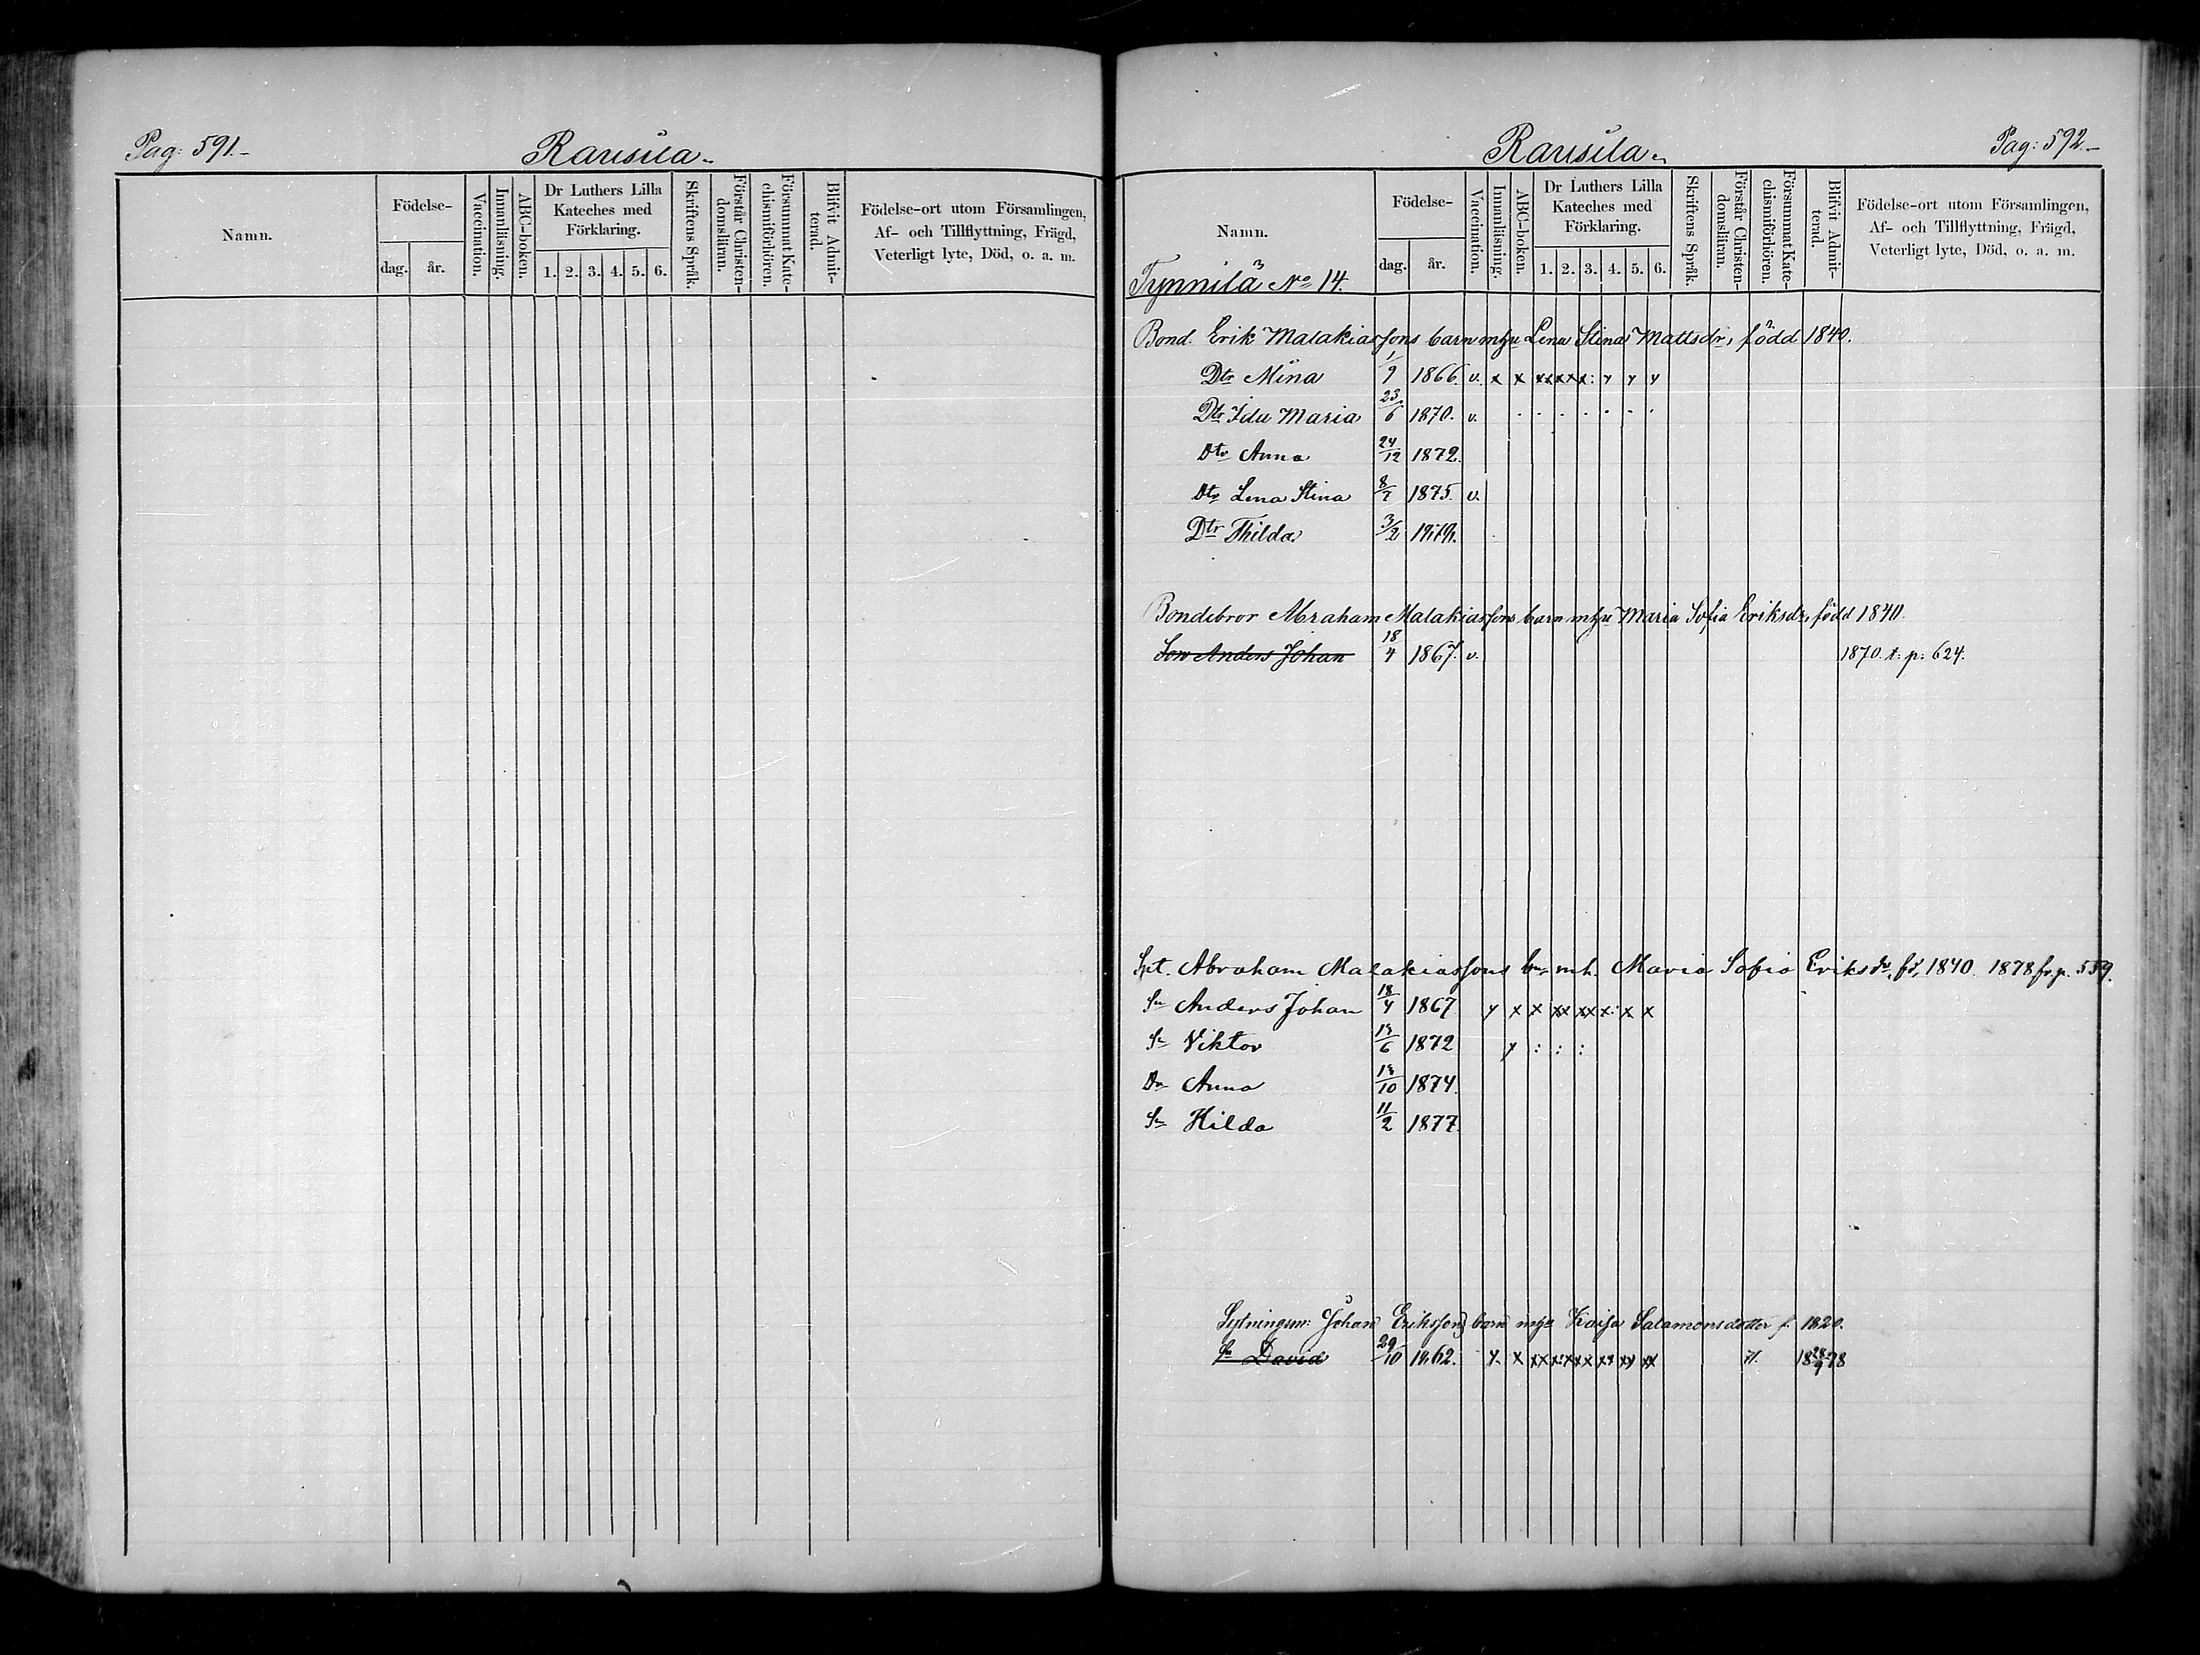 Pag: 591.
Rausila.
Namn.
Födelse-
dag. år.
Vaccination.
Innanläsning.
ABC-boken.
Dr Luthers Lilla
Kateches med
Förklaring.
1. 2. 3. 4. 5. 6.
Skriftens Språk.
Förstår Christen-
domsläran.
Försummat Kate-
chismiförhören.
Blifvit Admit-
terad.
Födelse-ort utom Församlingen,
Af- och Tillflyttning, Frägd,
Veterligt lyte, Död, o. a. m.
Rausila.
Pag: 592.
Namn.
Födelse-
dag. år.
Vaccination.
Innanläsning.
ABC-boken.
Dr Luthers Lilla
Kateches med
Förklaring.
1. 2. 3. 4. 5. 6.
Skriftens Språk.
Förstår Christen-
domsläran.
Försummat Kate-
chismiförhören.
Blifvit Admit-
terad.
Födelse-ort utom Församlingen,
Af- och Tillflyttning, Frägd,
Veterligt lyte, Död, o. a. m.
Tynnilä No 14.
Bond. Erik Malakiassons barn m hu Lena Stina Mattsdr, född 1840.
Dtr Mina 1/9 1866. v. x x xx xx x: y y y
Dtr Ida Maria 23/6 1870. v.
Dtr Anna 24/12 1872.
Dtr Lena Stina 8/7 1875. v.
Dtr Thilda 3/2 1879.
Bondebror Abraham Malakiassons barn m hu Maria Sofia Eriksdr, född 1840.
Son Anders Johan 18/4 1867. v. 1870. t. p. 624.
Spt. Abraham Malakiassons bn m h. Maria Sofia Eriksdr, fd, 1840. 1878 fr. p. 559.
Sn Anders Johan 18/4 1867 y x x xx xx x: x x
Sn Viktor 18/6 1872 y : : :
Dr Anna 18/10 1874.
Sn Hilda 11/2 1877.
Sytningsm: Johan Erikssons barn m hu Kaisa Salamonsdotter f. 1820.
Sn David 29/10 1862. 18 28/9 78